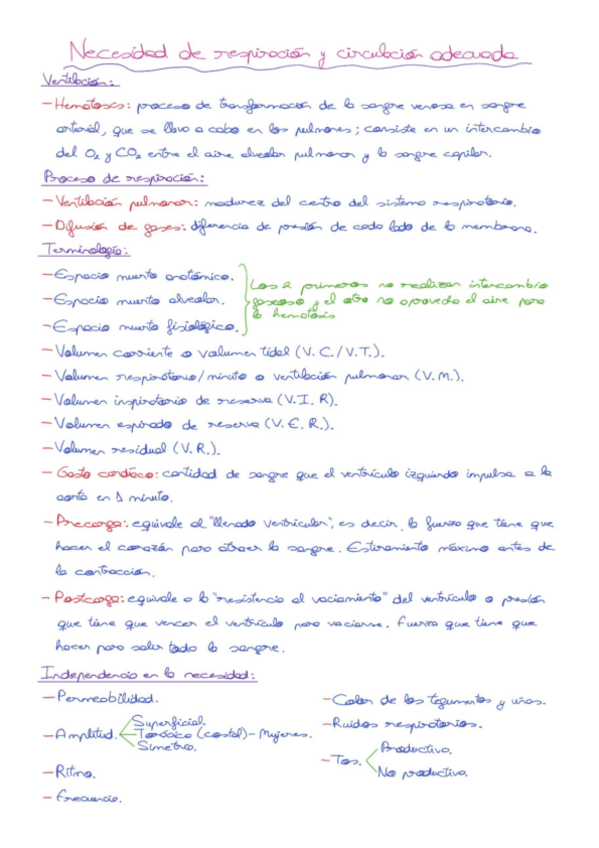 Necesidad de respiración y circulación adecuada
Ventilación:
- Hematosis: proceso de transformación de la sangre venosa en sangre
arterial, que se lleva a cabo en los pulmones; consiste en un intercambio
del O₂ y CO₂ entre el aire alveolar pulmonar y la sangre capilar.
Proceso de respiración:
- Ventilación pulmonar: madurez del centro del sistema respiratorio.
- Difusión de gases: diferencia de presión de cada lado de la membrana.
Terminología:
- Espacio muerto anatómico.
- Espacio muerto alveolar.
- Espacio muerto fisiológico.
Los 2 primeros no realizan intercambio
gaseoso y el otro no aprovecha el aire para
la hemotosis
- Volumen corriente o volumen tidal (V.C./V.T.).
- Volumen respiratorio/minuto o ventilación pulmonar (V.M.).
- Volumen inspiratorio de reserva (V.I.R).
- Volumen espirado de reserva (V.E.R.).
- Volumen residual (V.R.).
- Gasto cardíaco: cantidad de sangre que el ventrículo izquierdo impulsa a la
aorta en 1 minuto.
- Precarga: equivale al "llenado ventricular", es decir, la fuerza que tiene que
hacer el corazón para atraer la sangre. Estiramiento máximo antes de
la contracción.
- Postcarga: equivale a la "resistencia al vaciamiento" del ventrículo o presión
que tiene que vencer el ventrículo para vaciarse. Fuerza que tiene que
hacer para salir toda la sangre.
Independencia en la necesidad:
- Permeabilidad.
- Amplitud.
Superficial.
Torácica (costal) - Mujeres.
Simétrica.
- Ritmo.
- Frecuencia.
- Color de los tegumentos y uñas.
- Ruidos respiratorios.
- Tos.
Productiva.
No productiva.